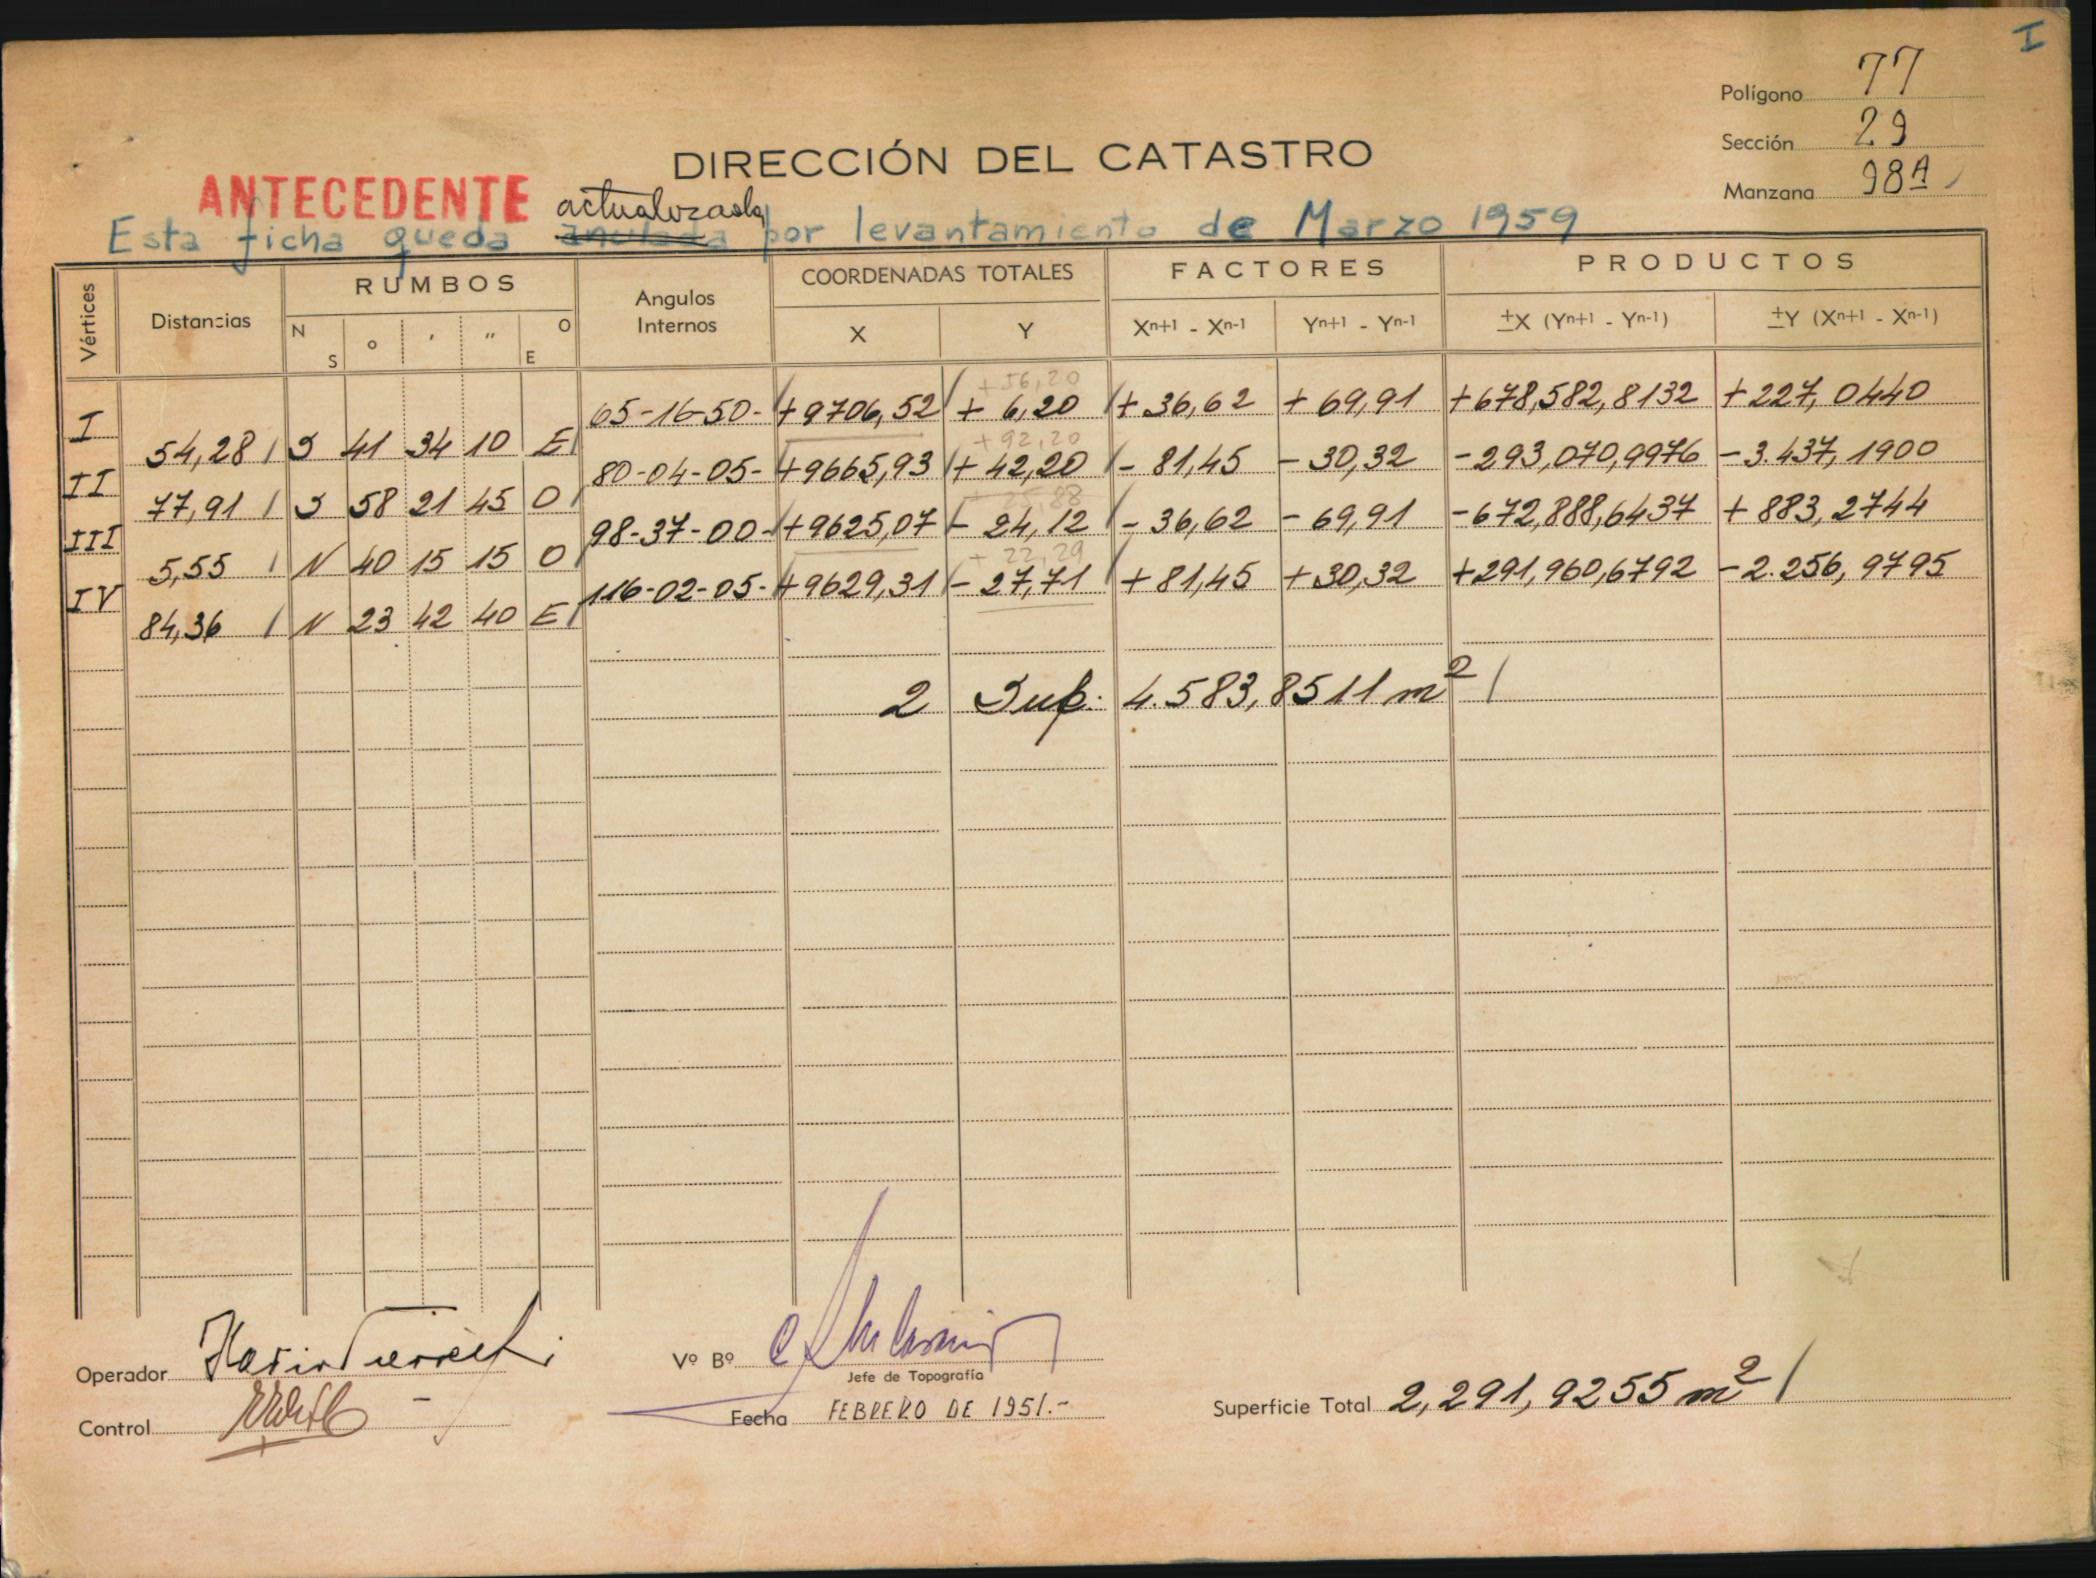 I
Polígono 77
Sección 29
Manzana 98A
DIRECCIÓN DEL CATASTRO
ANTECEDENTE actualizada
Esta ficha queda anulada por levantamiento de Marzo 1959
Vértices Distancias RUMBOS Angulos Internos COORDENADAS TOTALES FACTORES PRODUCTOS
N S o ' " O E X Y Xn+1 - Xn-1 Yn+1 - Yn-1 ±X (Yn+1 - Yn-1) ±Y (Xn+1 - Xn-1)
+56,20
I 65-16-50- +9706,52 + 6,20 +36,62 +69,91 +678,582,8132 +227,0440
54,28 S 41 34 10 E
+92,20
II 80-04-05- +9665,93 + 42,20 -81,45 -30,32 -293,070,9976 -3.437,1900
77,91 S 58 21 45 O
+ 25,88
III 98-37-00- +9625,07 - 24,12 -36,62 -69,91 -672,888,6437 +883,2744
5,55 N 40 15 15 O
+ 22,29
IV 116-02-05- +9629,31 - 27,71 +81,45 +30,32 +291,960,6792 -2.256,9795
84,36 N 23 42 40 E
2 Sup. 4.583,8511 m2
Operador
Vº Bº
Jefe de Topografía
Control
Fecha FEBRERO DE 1951.-
Superficie Total 2,291,9255 m2